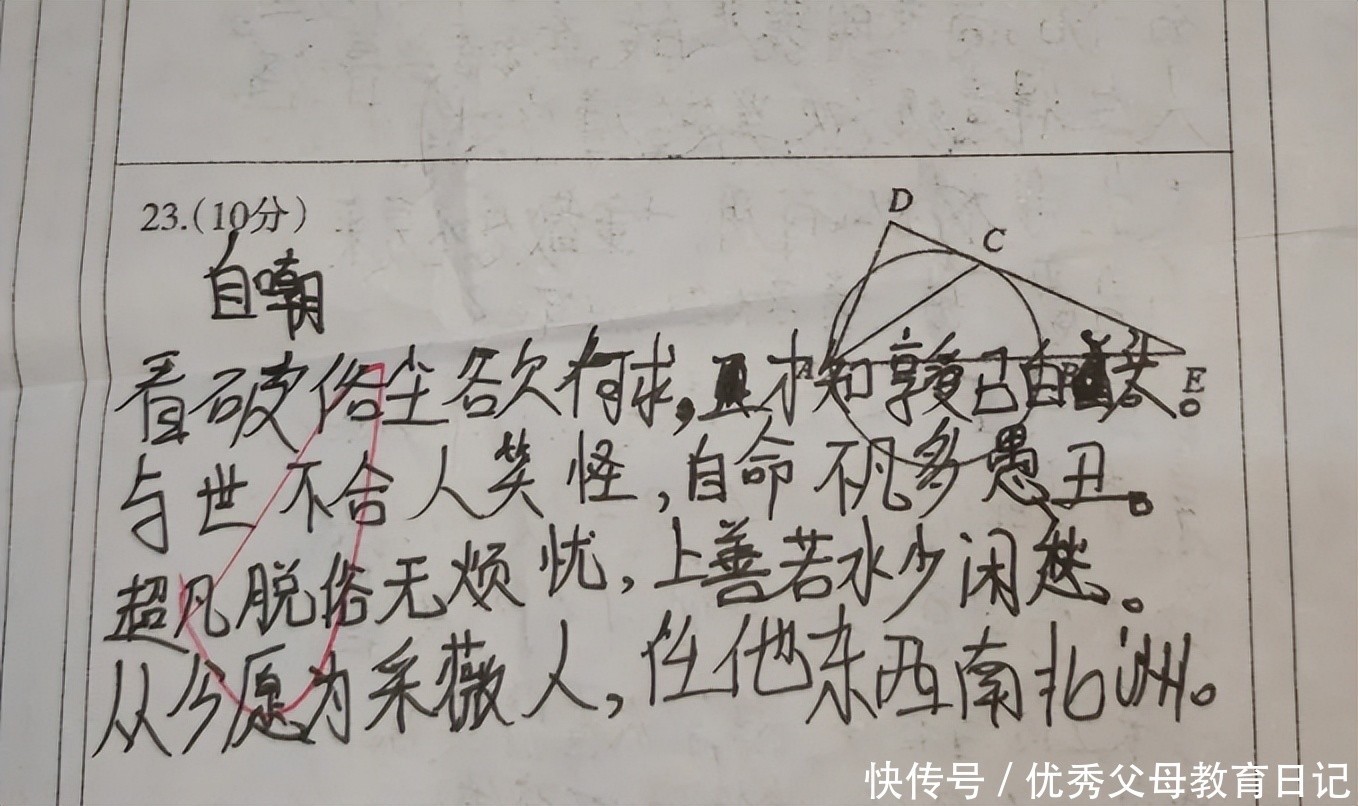 23.(10分)
D
C
自嘲
看破俗尘各欠有何求,才知享受已白头。
E
与世不合人笑怪,自命不凡多愚丑。
超凡脱俗无烦忧,上善若水少闲愁。
从今愿为采薇人,任他东西南北洲。
快传号 / 优秀父母教育日记